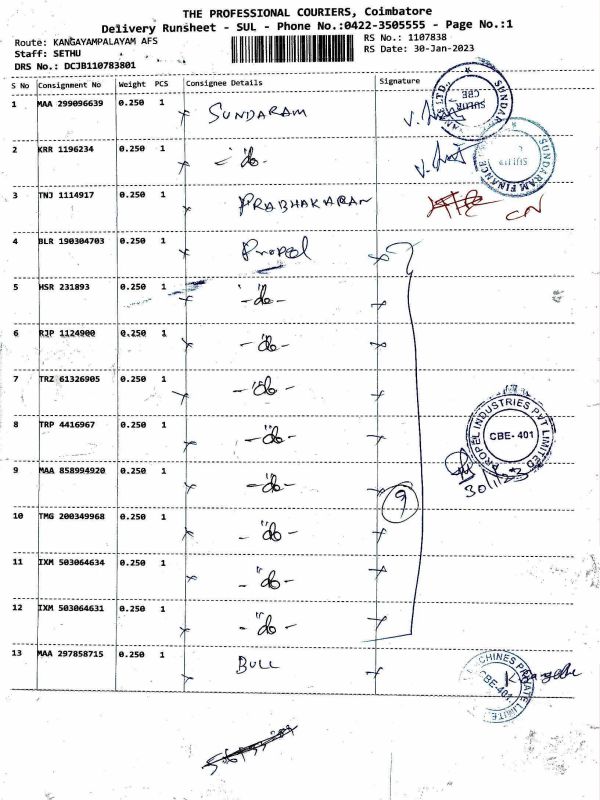 THE PROFESSIONAL COURIERS, Coimbatore
Delivery Runsheet - SUL - Phone No.:0422-3505555 - Page No.:1
Route: KANGAYAMPALAYAM AFS
RS No.: 1107838
Staff: SETHU
RS Date: 30-Jan-2023
DRS No.: DCJB110783801
S No Consignment No Weight PCS Consignee Details Signature
1 MAA 299096639 0.250 1 SUNDARAM
SULUR
CBE
2 KRR 1196234 0.250 1 - do -
SUNDARAM FINANCE
SULUR
3 TNJ 1114917 0.250 1 PRABHAKARAN
4 BLR 190304703 0.250 1 Propel
5 HSR 231893 0.250 1 - do -
6 RJP 1124900 0.250 1 - do -
7 TRZ 61326905 0.250 1 - do -
8 TRP 4416967 0.250 1 - do -
PROPEL INDUSTRIES PVT LIMITED
CBE- 401
30/1/23
9 MAA 858994920 0.250 1 - do -
9
10 TMG 200349968 0.250 1 - do -
11 IXM 503064634 0.250 1 - do -
12 IXM 503064631 0.250 1 - do -
13 MAA 297858715 0.250 1 BULL
CHINES PRIVATE LIMITE
CBE-401